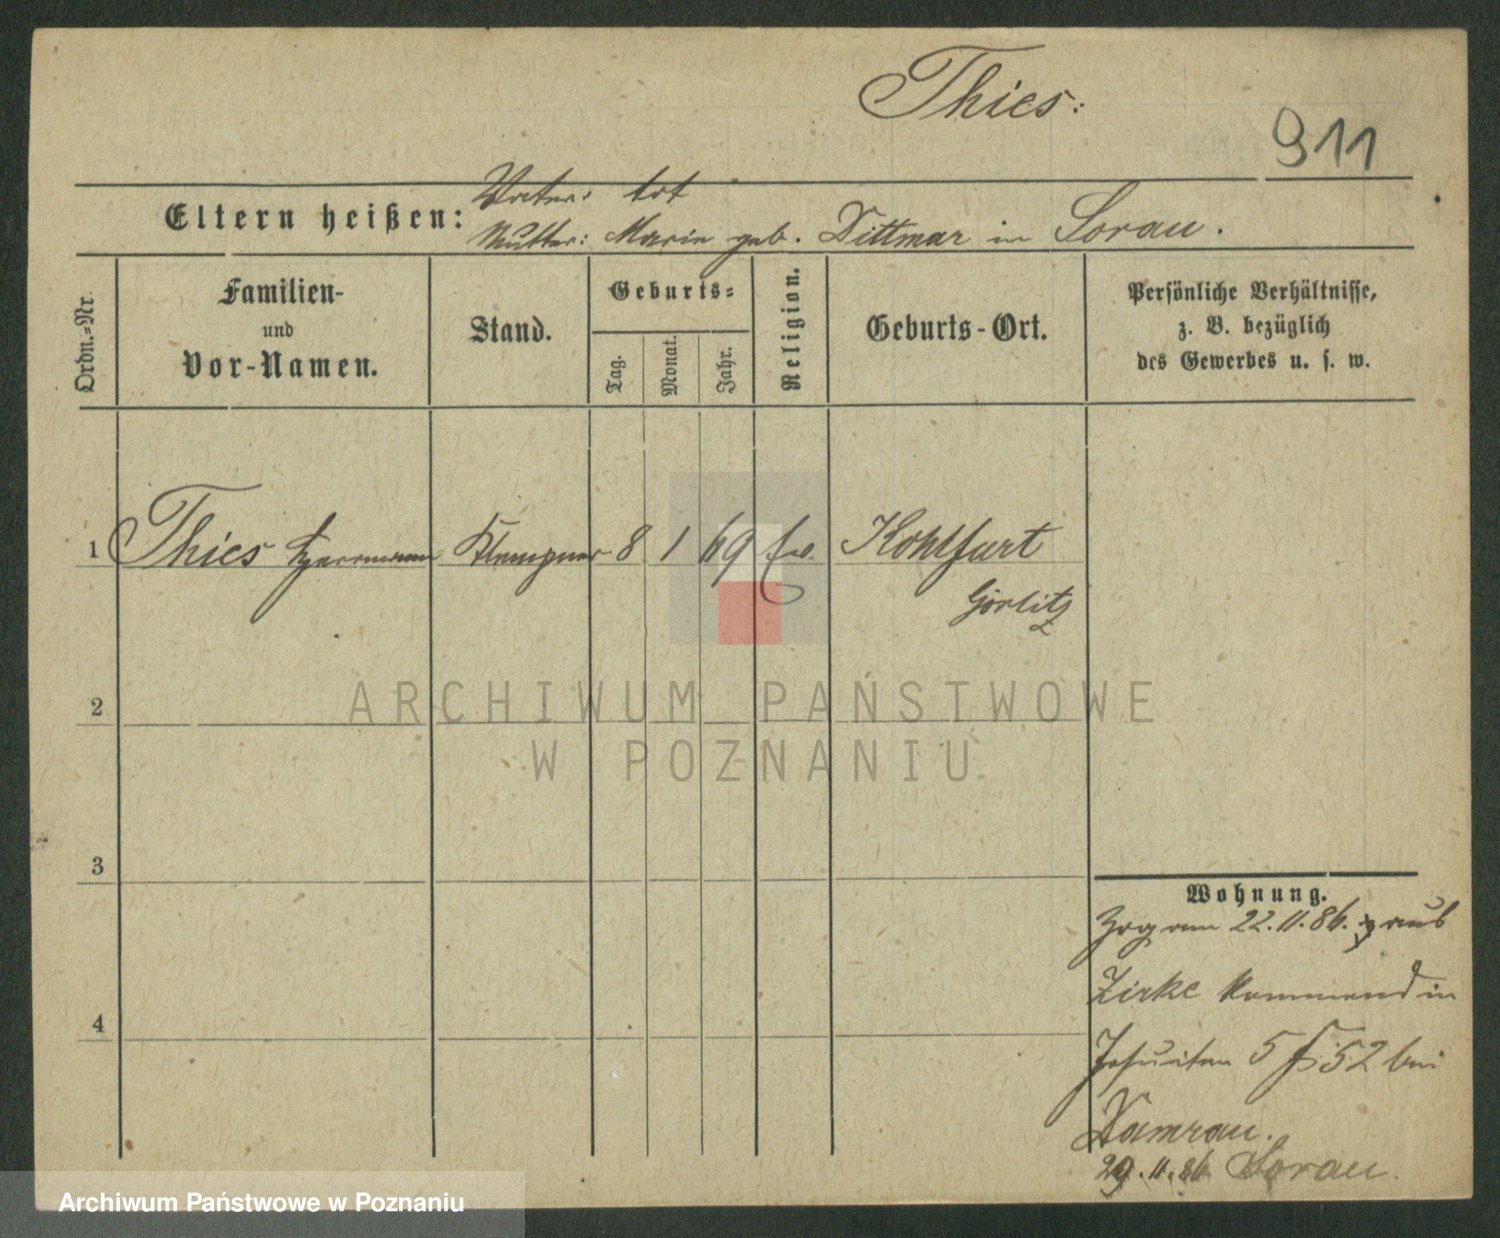 Thies:
911
Eltern heißen:
Vater: tot
Mutter: Marie geb. Dittmar in Sorau.
Ordn.=Nr.
Familien-
und
Vor-Namen.
Stand.
Geburts=
Tag.
Monat.
Jahr.
Religion.
Geburts-Ort.
Persönliche Verhältnisse,
z. B. bezüglich
des Gewerbes u. s. w.
1 Thies Herrmann Klempner 8 1 69 ev. Kohlfurt
Görlitz
2
3
4
Wohnung.
Zog am 22.11.86. aus
Zirke kommend in
Jesuiten 5 52 bei
Damrau.
29.11.86 Sorau.
ARCHIWUM PAŃSTWOWE
W POZNANIU
Archiwum Państwowe w Poznaniu